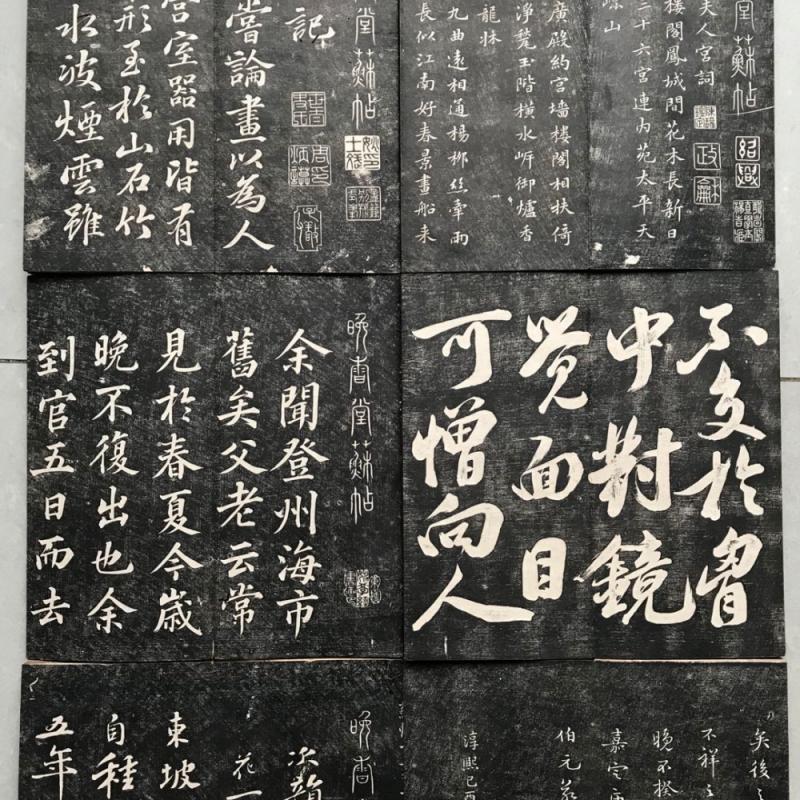 堂蘇帖
夫人宮詞
樓閣鳳城間花木長新日
三十六宮連內苑太平天
山
廣殿約宮墻樓閣相扶倚
淨甃玉階橫水岸御爐香
龍牀
九曲遠相通楊柳絲牽兩
長似江南好春景畫船來
堂蘇帖
記
嘗論畫以為人
宮室器用皆有
形至於山石竹
水波煙雲雖
不交於胷
中對鏡
覺面目
可憎向人
晚香堂蘇帖
余聞登州海市
舊矣父老云常
見於春夏今歲
晚不復出也余
到官五日而去
矣後
不祥
晚不揆
嘉定
伯元
淳熙己酉
晚香
次韻
花一
東坡
自種
五年